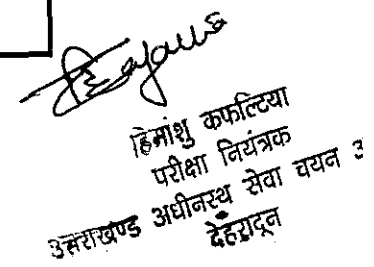 हिमांशु कफल्टिया
परीक्षा नियंत्रक
उत्तराखण्ड अधीनस्थ सेवा चयन
देहरादून